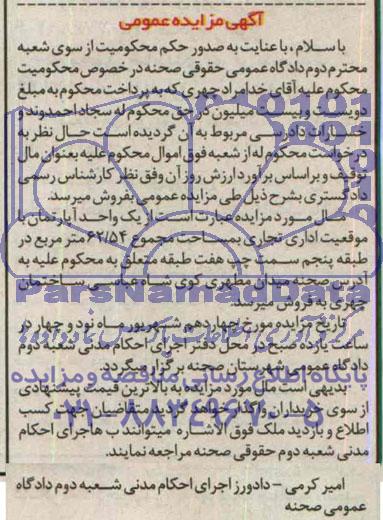 آگهی مزایده عمومی
با سلام ، با عنایت به صدور حکم محکومیت از سوی شعبه
محترم دوم دادگاه عمومی حقوقی صحنه در خصوص محکومیت
محکوم علیه آقای خدامراد چهری که به پرداخت محکوم به مبلغ
دویست و بیست میلیون در حق محکوم له سجاد احمدوند و
خسارات دادرسی مربوط به آن گردیده است حال نظر به
درخواست محکوم له از شعبه فوق اموال محکوم علیه بعنوان مال
توقیف و براساس برآورد ارزش روز آن وفق نظر کارشناس رسمی
دادگستری بشرح ذیل طی مزایده عمومی بفروش میرسد.
مال مورد مزایده عبارت است از یک واحد آپارتمان با
موقعیت اداری تجاری بمساحت مجموع ۶۲/۵۴ متر مربع در
طبقه پنجم سمت چپ هفت طبقه متعلق به محکوم علیه به
آدرس صحنه میدان مطهری کوی شاه عباسی ساختمان
چهری به فروش میرسد.
تاریخ مزایده مورخ چهاردهم شهریور ماه نود و چهار در
ساعت یازده صبح در محل دفتر اجرای احکام مدنی شعبه دوم
دادگاه عمومی شهرستان صحنه برگزار میگردد.
بدیهی است مال مورد مزایده به بالاترین قیمت پیشنهادی
از سوی خریداران واگذار خواهد گردید متقاضیان جهت کسب
اطلاع و بازدید ملک فوق الاشاره میتوانند ب هاجرای احکام
مدنی شعبه دوم حقوقی صحنه مراجعه نمایند.
امیر کرمی – دادورز اجرای احکام مدنی شعبه دوم دادگاه
عمومی صحنه
ParsNamadData
پایگاه اطلاع رسانی مناقصه و مزایده
۰۲۱-۸۸۳۴۹۶۷۰-۵